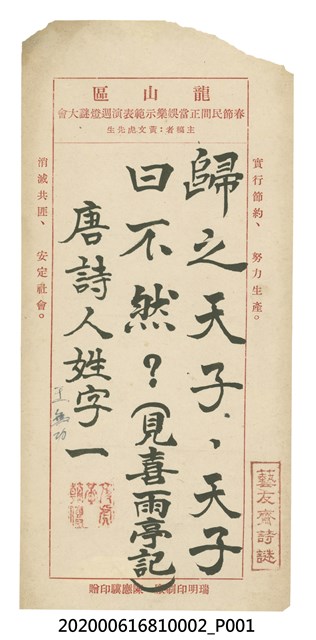 龍山區
春節民間正當娛樂示範表演迴燈謎大會
主稿者：黃文虎先生
實行節約、努力生產。
歸之天子、天子
曰不然？（見喜雨亭記）
唐詩人姓字一
王無功
消滅共匪、安定社會。
藝友齋詩謎
瑞明印製廠 陳廳驥印贈
202000616810002_P001